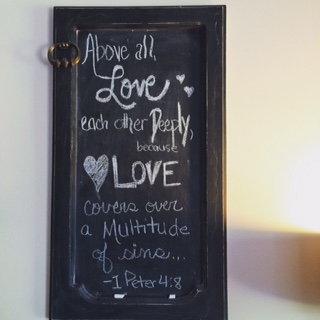 Above all,
Love
each other Deeply,
because
LOVE
covers over
a Multitude
of sins...
-I Peter 4:8